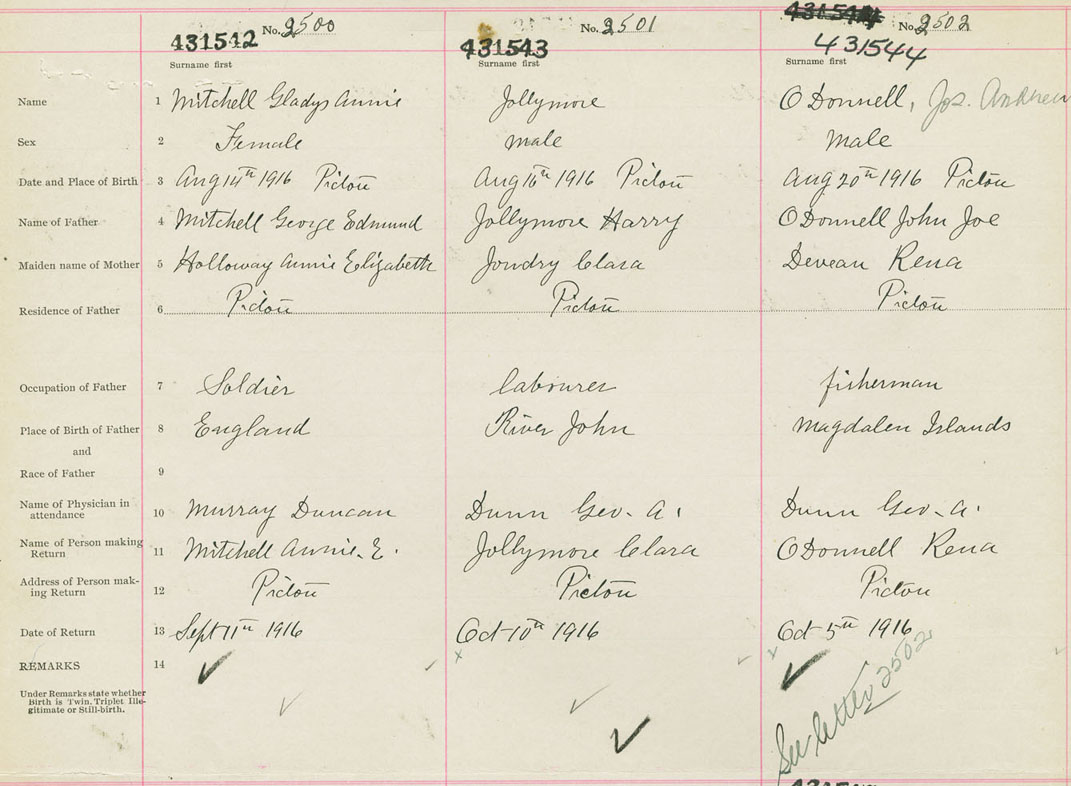 431542 No. 2500 431543 No. 2501 No. 2502
431544
Surname first Surname first Surname first
Name 1 Mitchell Gladys Annie Jollymore O Donnell, Jos. Andrew
Sex 2 Female male Male
Date and Place of Birth 3 Aug 14th 1916 Pictou Aug 16th 1916 Pictou Aug 20th 1916 Pictou
Name of Father 4 Mitchell George Edmund Jollymore Harry O Donnell John Joe
Maiden name of Mother 5 Holloway Annie Elizabeth Joudry Clara Deveau Rena
Residence of Father 6 Pictou Pictou Pictou
Occupation of Father 7 Soldier labourer fisherman
Place of Birth of Father 8 England River John Magdalen Islands
and
Race of Father 9
Name of Physician in
attendance 10 Murray Duncan Dunn Geo. A. Dunn Geo. A.
Name of Person making
Return 11 Mitchell Annie. E. Jollymore Clara O Donnell Rena
Address of Person mak-
ing Return 12 Pictou Pictou Pictou
Date of Return 13 Sept 11th 1916 Oct 10th 1916 Oct 5th 1916
REMARKS 14
Under Remarks state whether
Birth is Twin, Triplet Ille-
gitimate or Still-birth.
See letter 2502